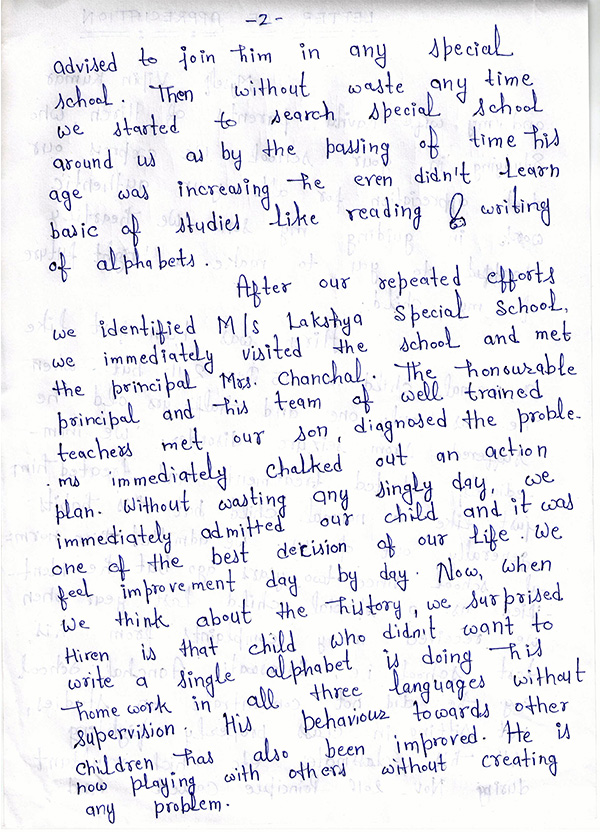 -2-
advised to join him in any special
school. Then without waste any time
we started to search special school
around us as by the passing of time his
age was increasing he even didn't learn
basic of studies like reading & writing
of alphabets.
After our repeated efforts
we identified M/s Lakshya Special School,
we immediately visited the school and met
the principal Mrs. Chanchal. The honourable
principal and his team of well trained
teachers met our son, diagnosed the proble-
ms immediately chalked out an action
plan. Without wasting any singly day, we
immediately admitted our child and it was
one of the best decision of our life. We
feel improvement day by day. Now, when
we think about the history, we surprised
Hiren is that child who didn't want to
write a single alphabet is doing his
home work in all three languages without
supervision. His behaviour towards other
children has also been improved. He is
now playing with others without creating
any problem.